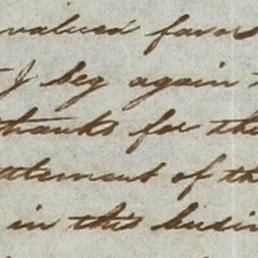 valued favor
I beg again
thanks for the
ttlement of th
in this busin